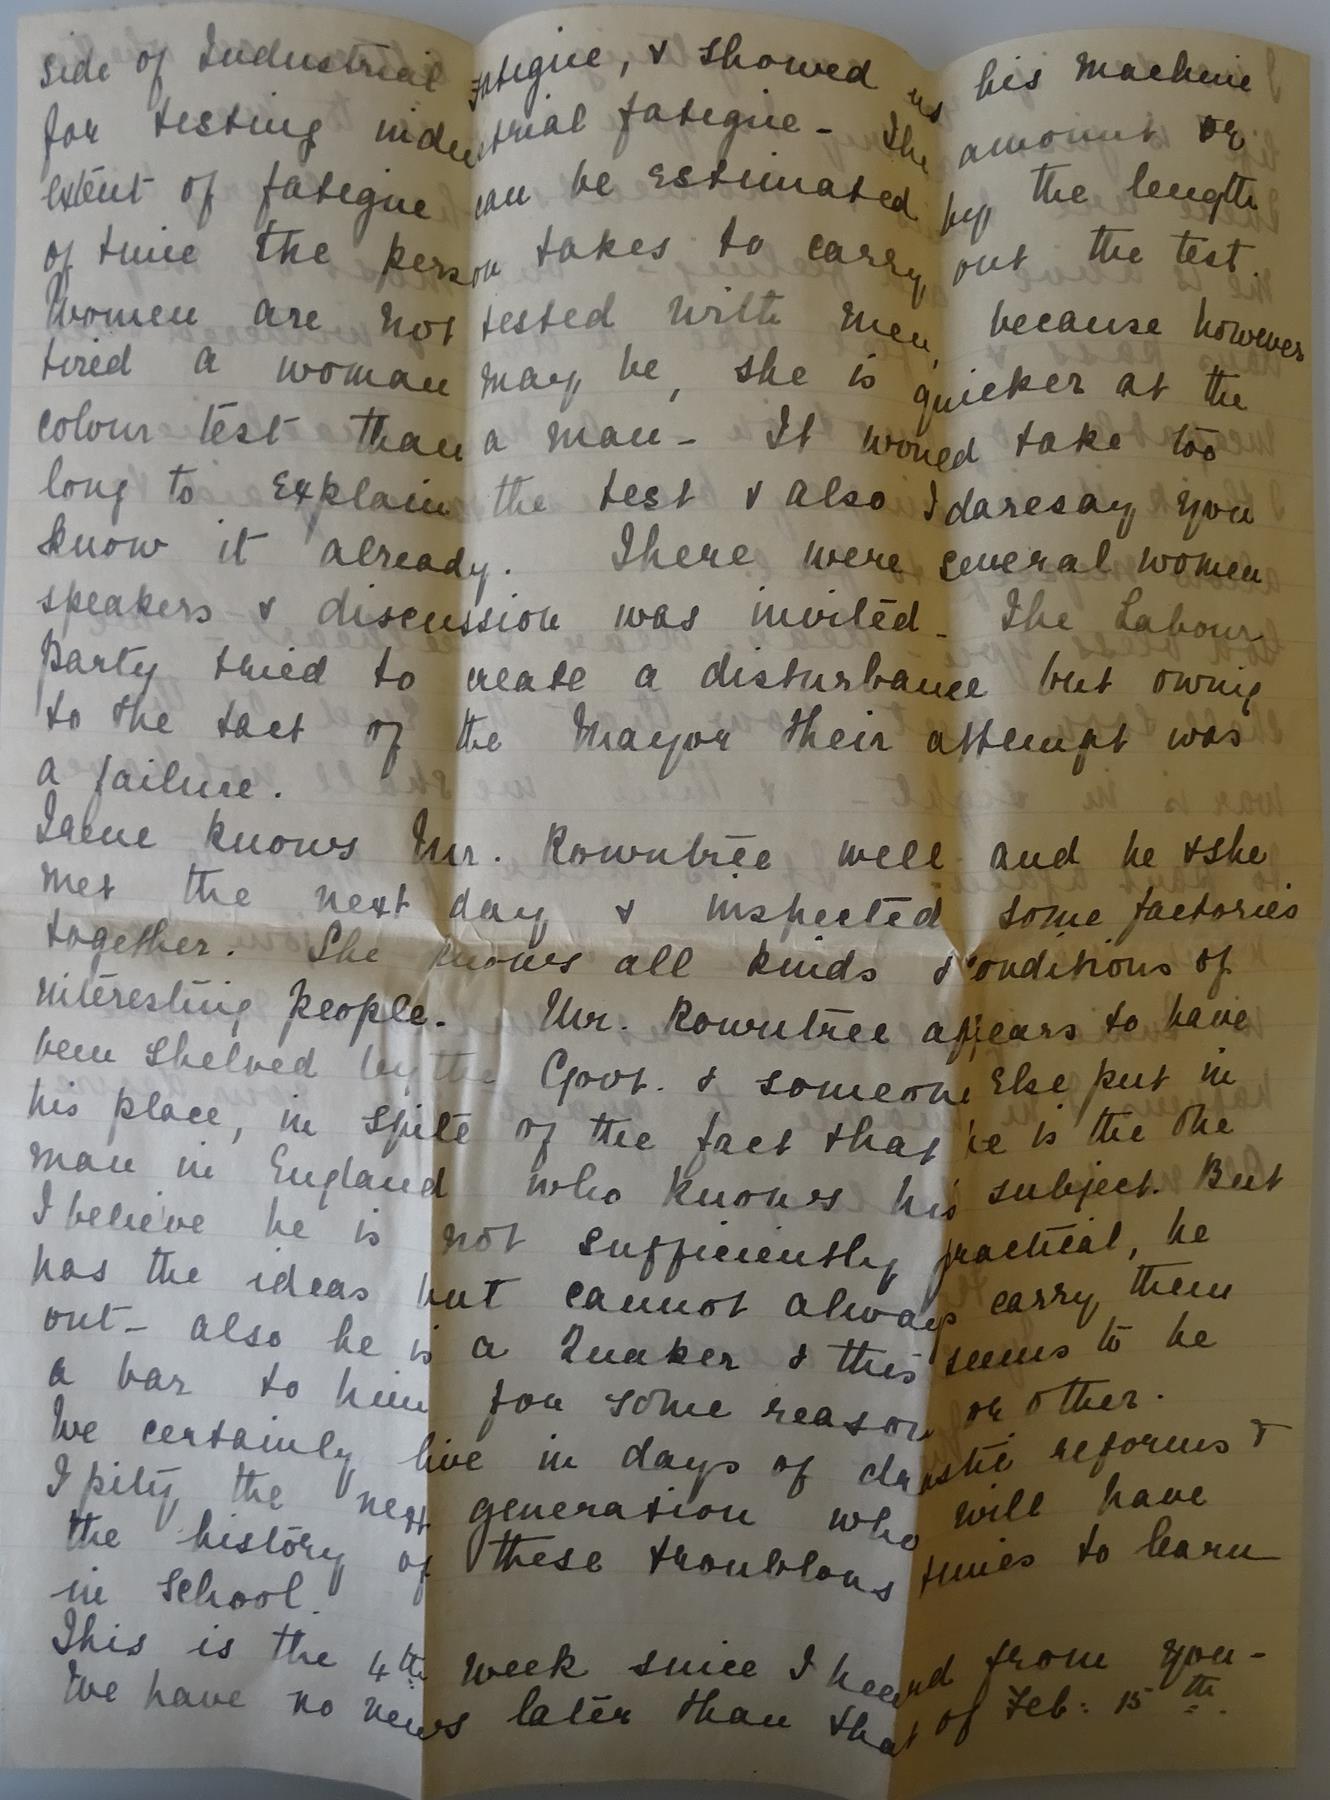 side of Industrial fatigue, & showed us his machine
for testing industrial fatigue - The amount or
extent of fatigue can be estimated by the length
of time the person takes to carry out the test.
Women are not tested with men, because however
tired a woman may be, she is quicker at the
colour test than a man - It would take too
long to explain the test & also I daresay you
know it already. There were several women
speakers & discussion was invited - The Labour
Party tried to create a disturbance but owing
to the tact of the Mayor their attempt was
a failure.
Irene knows Mr. Rowntree well and he & she
met the next day & inspected some factories
together. She knows all kinds & conditions of
interesting people. Mr. Rowntree appears to have
been shelved by the Govt. & someone else put in
his place, in spite of the fact that he is the one
man in England who knows his subject. But
I believe he is not sufficiently practical, he
has the ideas but cannot always carry them
out - also he is a Quaker & this seems to be
a bar to him for some reason or other.
We certainly live in days of drastic reforms &
I pity the next generation who will have
the history of these troublous times to learn
in school.
This is the 4th week since I heard from you -
We have no news later than that of Feb: 15th.